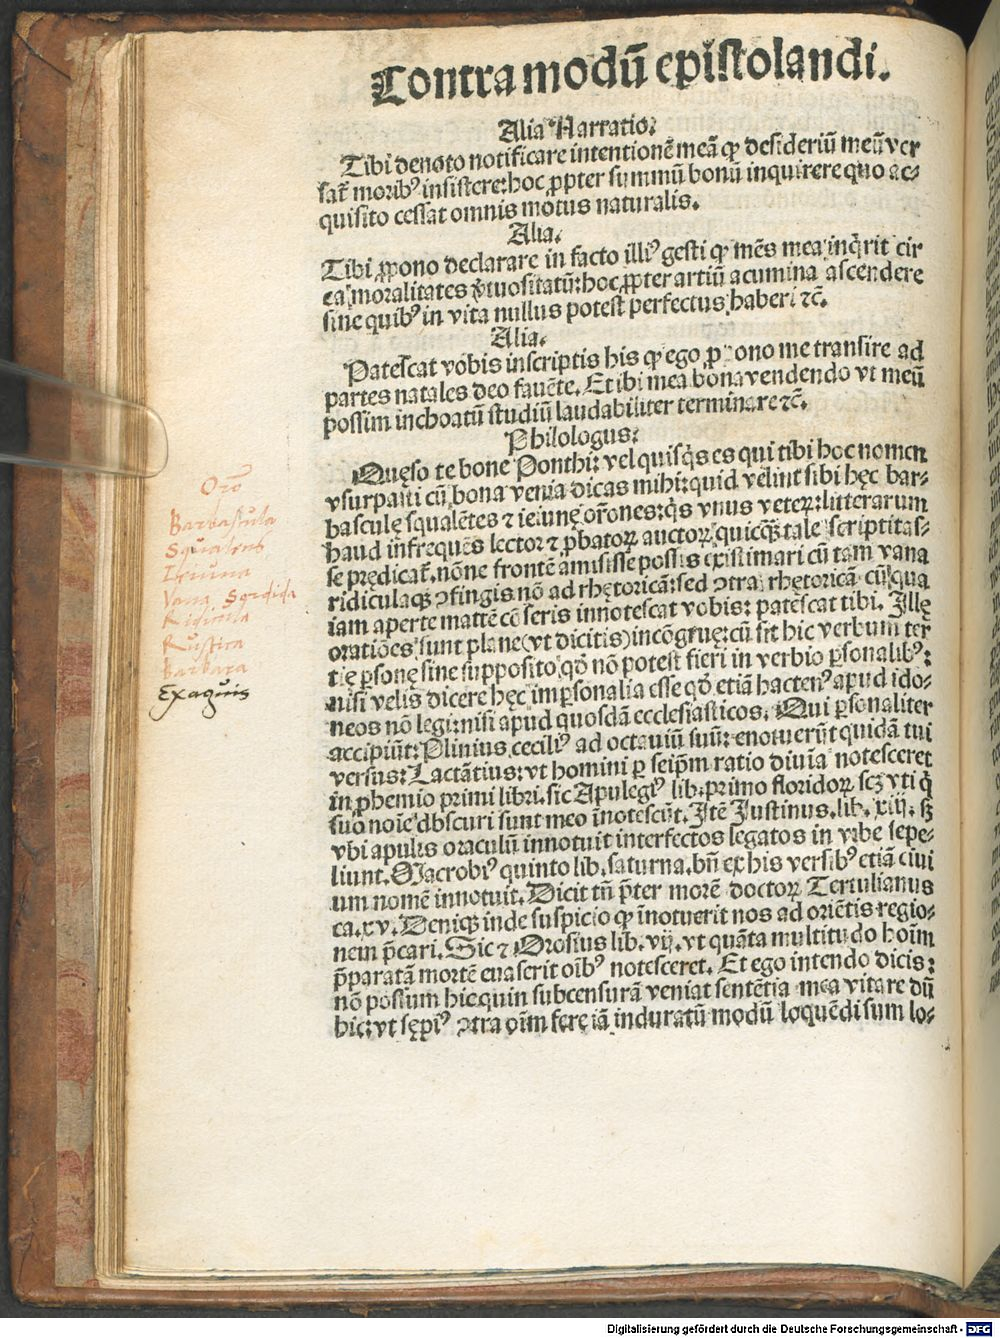 Contra modū epistolandi.
Alia Narratio:
Tibi denoto notificare intentionē meā qꝫ desideriū meū ver
sat̄ moribꝰ insistere: hoc ꝓpter summū bonū inquirere quo ac⸗
quisito cessat omnis motus naturalis.
Alia.
Tibi ꝓpono declarare in facto illiꝰ gesti qꝫ mēs mea inq̄rit cir
ca moralitates ꝟtuositatū: hoc ꝓpter artiū acumina ascendere
sine quibꝰ in vita nullus potest perfectus haberi ⁊c̄.
Alia.
Patescat vobis inscriptis his qꝫ ego ꝓpono me transire ad
partes natales deo fauēte. Et ibi mea bona vendendo vt meū
possim inchoatū studiū laudabiliter terminare ⁊c̄.
Philologus:
Quęso te bone Ponthi: vel quisq̄s es qui tibi hoc nomen
vsurpasti cū bona venia dicas mihi: quid velint sibi hęc bar⸗
basculę squalētes ⁊ ieiunę or̄ones: q̄s vnus veteꝝ: litterarum
haud infrequēs lector ⁊ ꝓbatoꝝ auctoꝝ quicqꝫ tale scriptitas⸗
se predicat̄. nōne frontē amisisse possis existimari cū tam vana
ridiculaqꝫ ꝯfingis nō ad rhetoricā: sed ꝯtra rhętoricā cū qua
iam aperte mattē cōseris innotescat vobis: patescat tibi. Illę
oratiōes sunt plane (vt dicitis) incōgruę: cū sit hic verbum ter
tię ꝑsonę sine supposito, qd̄ nō potest fieri in verbio ꝑsonalibꝰ:
nisi velis dicere hęc imꝑsonalia esse qd̄ etiā hactenꝰ apud ido⸗
neos nō legi: nisi apud quosdā ecclesiasticos. Qui ꝑsonaliter
accipiūt: Plinius ceciliꝰ ad octauiū suū: enotuerūt quidā tui
versus: Lactātius: vt homini ꝑ seip̄m ratio diuīa notesceret
in ꝓhemio primi libri. sic Apulegiꝰ lib. primo floridoꝝ scꝫ vti q̄
suo noīe obscuri sunt meo inotescūt. Itē Iustinus. lib. xij. sꝫ
vbi apulis oraculū innotuit interfectos legatos in vrbe sepe⸗
liunt. Macrobiꝰ quinto lib. saturna. bn̄ ex his versibꝰ etiā ciui
um nomē innotuit. Dicit tn̄ p̄ter morē doctoꝝ Tertulianus
ca. xv. Deniqꝫ inde suspicio qꝫ inotuerit nos ad oriētis regio⸗
nem p̄cari. Sic ⁊ Orosius lib. vij. vt quāta multitudo hoīm
p̄paratā mortē euaserit oībꝰ notesceret. Et ego intendo dicis:
nō possum hic quin subcensurā veniat sentētia mea vitare dū
hic: vt sępiꝰ ꝯtra oīm fere iā induratū modū loquēdi sum lo⸗
Or̄o
Barbascula
Squalens
Ieiuna
Vana Sordida
Ridicula
Rustica
Barbara
Exaguis
Digitalisierung gefördert durch die Deutsche Forschungsgemeinschaft - DFG